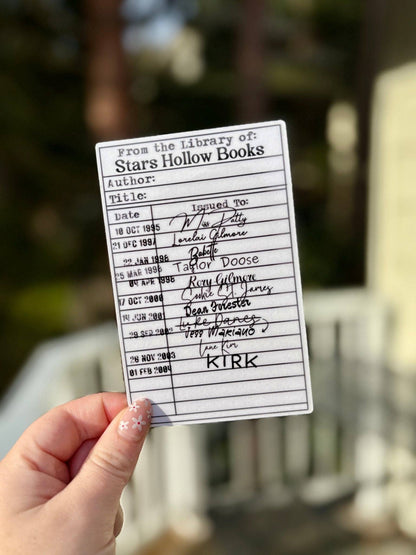 From the Library of:
Stars Hollow Books
Author:
Title:
Date Issued To:
10 OCT 1995 Miss Patty
21 DEC 1997 Lorelai Gilmore
22 JAN 1998 Babette
25 MAR 1998 Taylor Doose
04 APR 1998 Rory Gilmore
17 OCT 2000 Sookie St. James
14 JUN 2001 Dean Forester
Luke Danes
29 SEP 2002 Jess Mariano
Lane Kim
26 NOV 2003 KIRK
01 FEB 2004